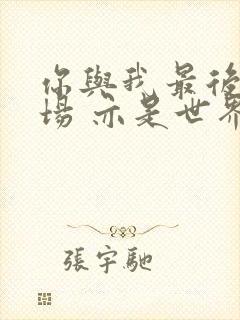 你與我 最後
場 亦是世界
張宇馳